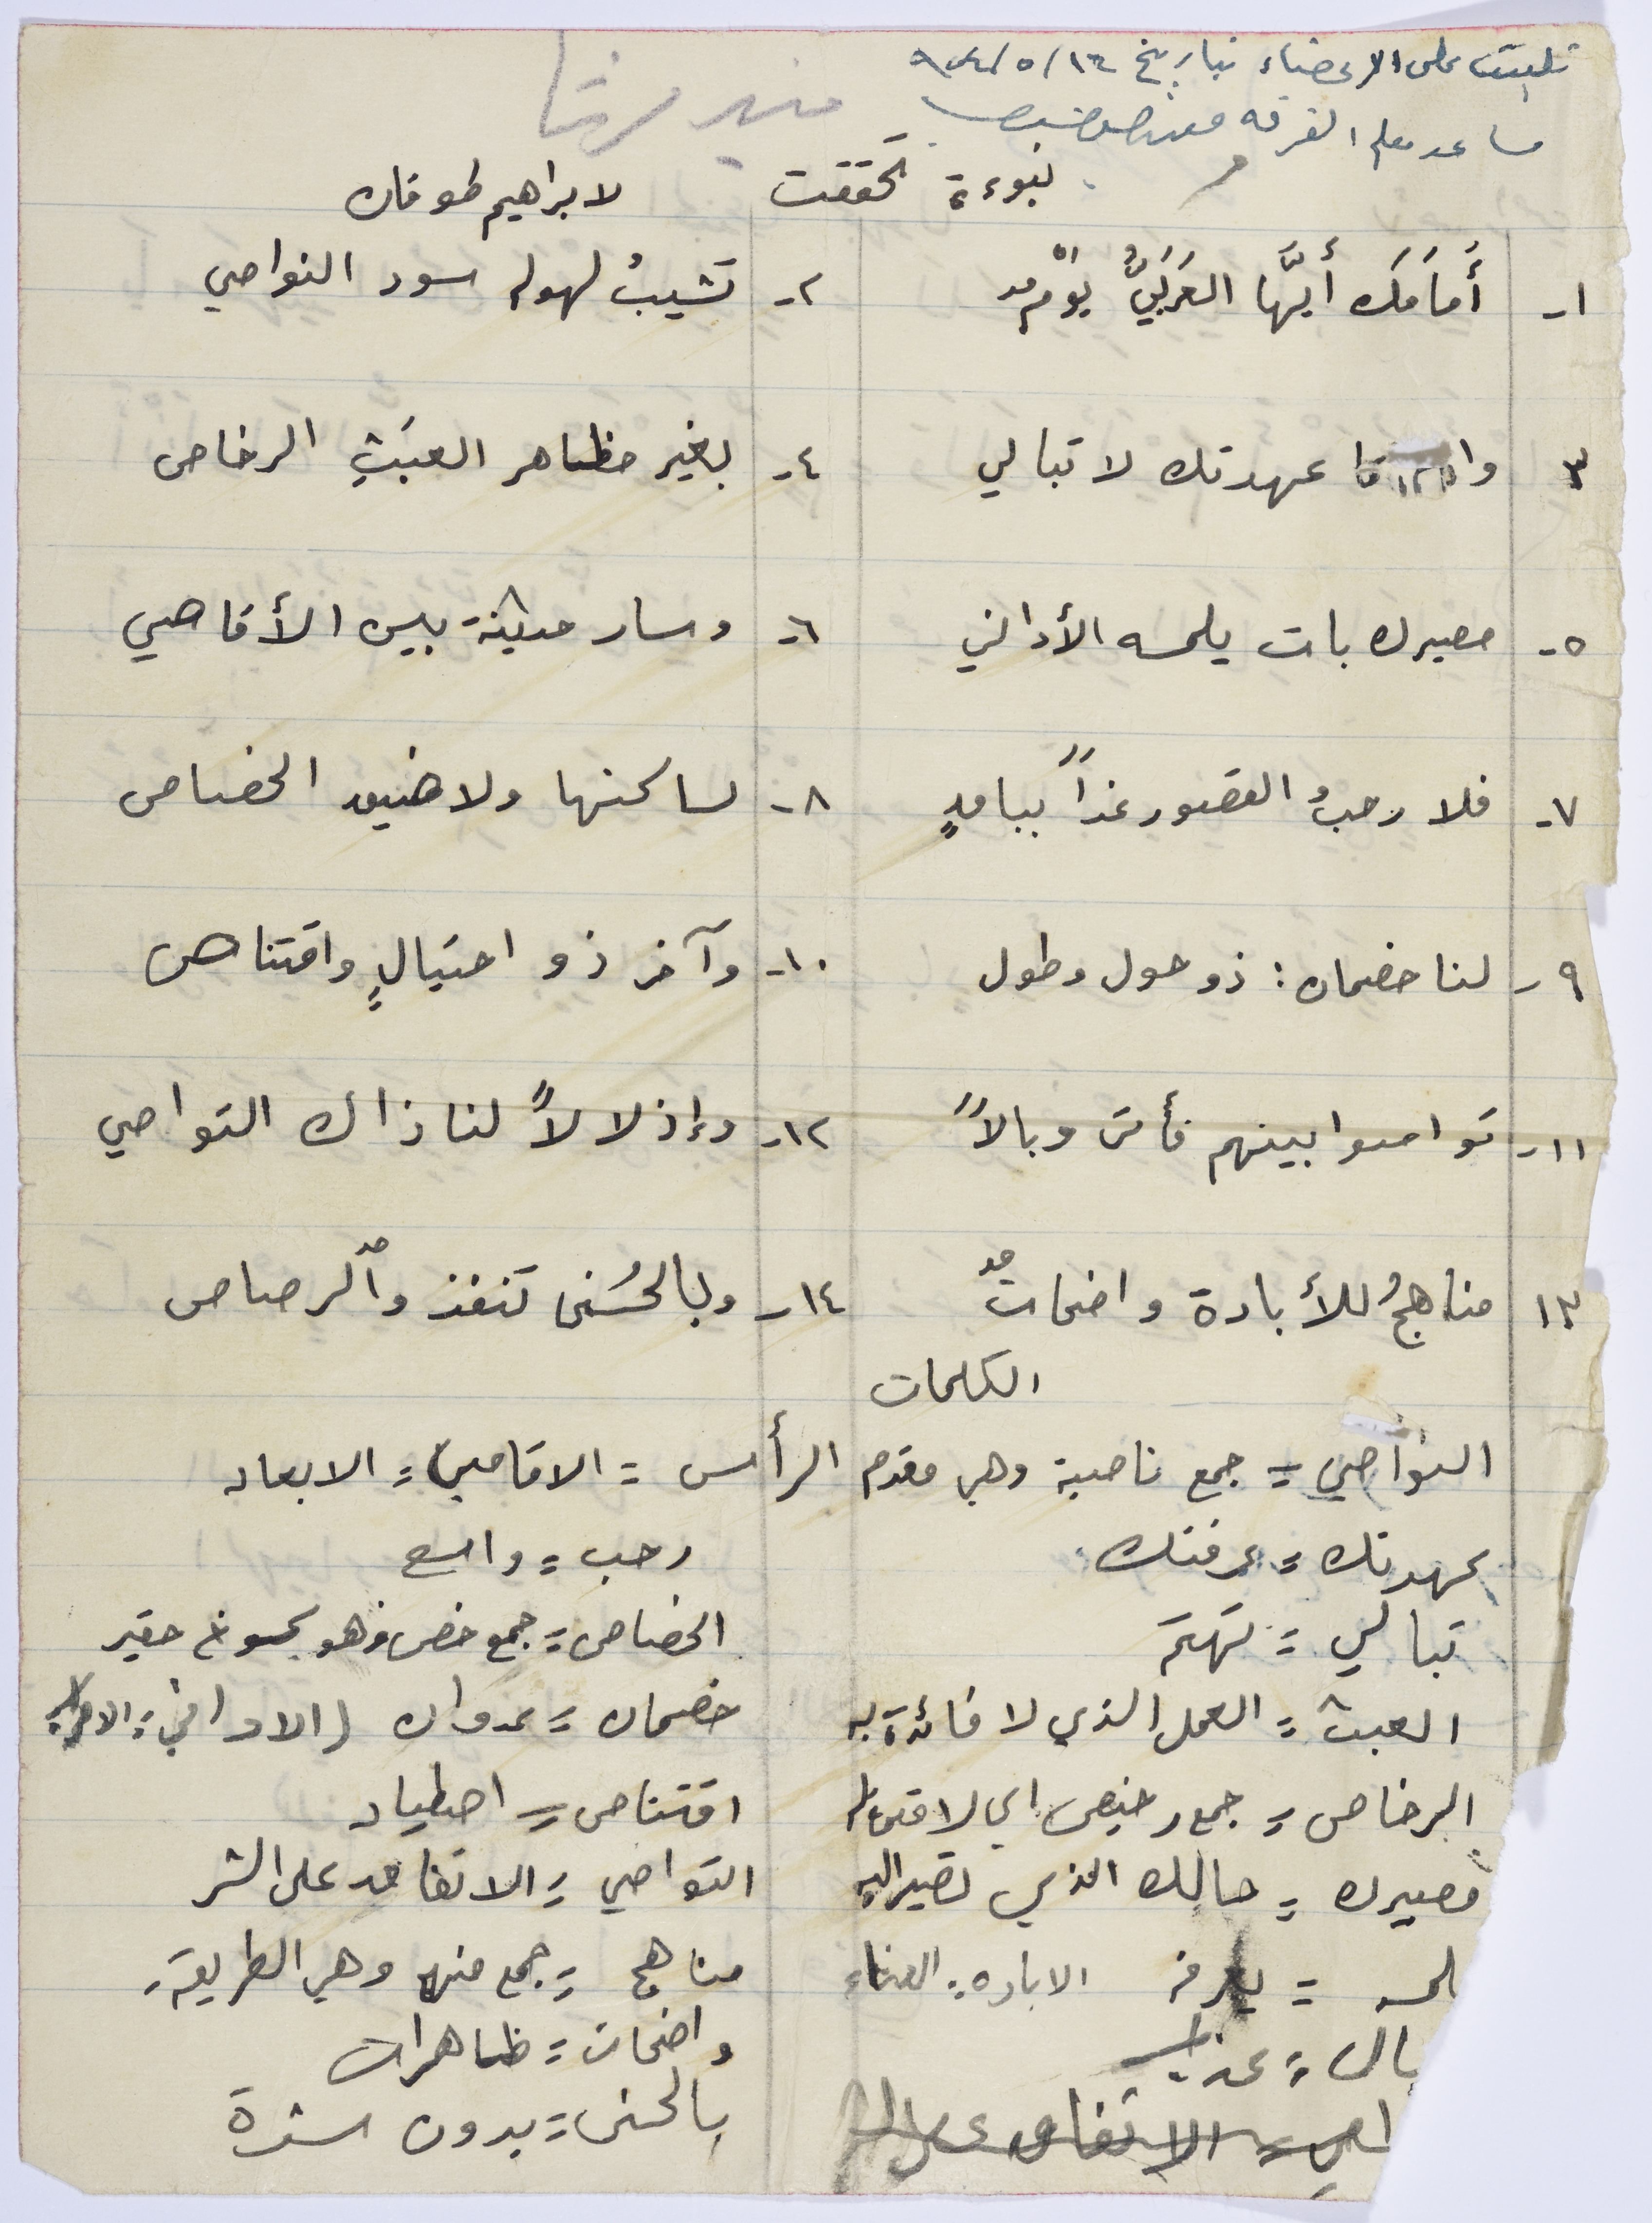 تليت على الاعضاء بتاريخ ١٦/٥/٩٤٤
مساعد معلم الفرقه
نبوءة تحققت لابراهيم طوقان
١- أَمَامَكَ أيُّها العَرَبيُّ يوْمٌ ٢- تَشيبُ لهوله سود النواصي
٣ وا عهدتك لا تبالي ٤- بغير مظاهر العبَثِ الرخاص
٥- مصيرك بات يلمسه الأداني ٦- وسار حديثه بين الأقاصي
٧- فلا رحبُ القصور غداً بباقٍ ٨- لساكنها ولا ضيق الخصاص
٩- لنا خصمان: ذو حول وطول ١٠- وآخر ذو احتيالٍ واقتناص
١١- تواصوا بينهم فأتى وبالاً ١٢- وإذلالاً لنا ذاك التواصي
١٣ مناهجُ للأبادة واضحاتٌ ١٤- وبالحُسنى تنفذ والرصاص
الكلمات
النواصي = جمع ناصية وهي مقدم الرأس = الاقاصي = الابعاد
عهدتك = عرفتك رحب = واسع
تبالي = تهتم الخصاص = جمع خص وهو كسوخ حقير
العبث = العمل الذي لا فائدة به خصمان = عدوان (الاداني =
الرخاص = جمع رخيص اي لا قيمة له اقتناص = اصطياد
مصيرك = حالك الذي تصير اليه التواصي = الاتفاق على الشر
لمسه = يعرفه الاباده = الفناء مناهج = جمع منهج وهي الطريقة
بال = عذاب واضحات = ظاهرات
اصي = الاتفاق على الشر بالحسنى = بدون شدة